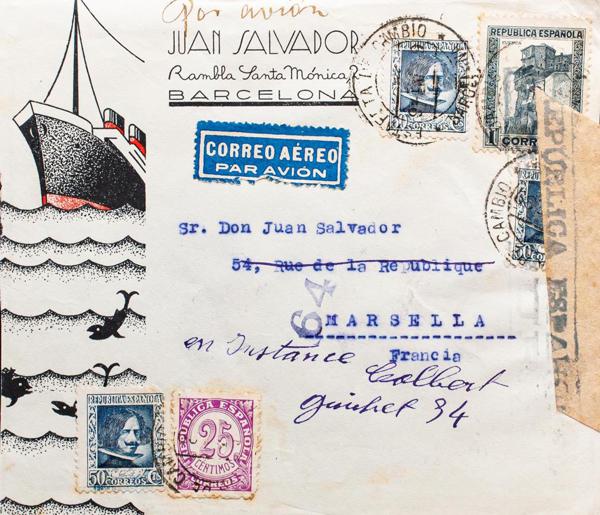 Por avión
JUAN SALVADOR
Rambla Santa Mónica,
BARCELONA
CORREO AÉREO
PAR AVIÓN
CAMBIO
CORREOS
REPUBLICA ESPAÑOLA
1
CORREOS
REPÚBLICA ESPAÑOLA
CAMBIO
50
Sr. Don Juan Salvador
54, Rue de la Republique
64
MARSELLA
Francia
en Instance Colbert
guichet 34
REPUBLICA ESPAÑOLA
50 CORREOS Cs
REPUBLICA ESPAÑOLA
25
CENTIMOS
CORREOS